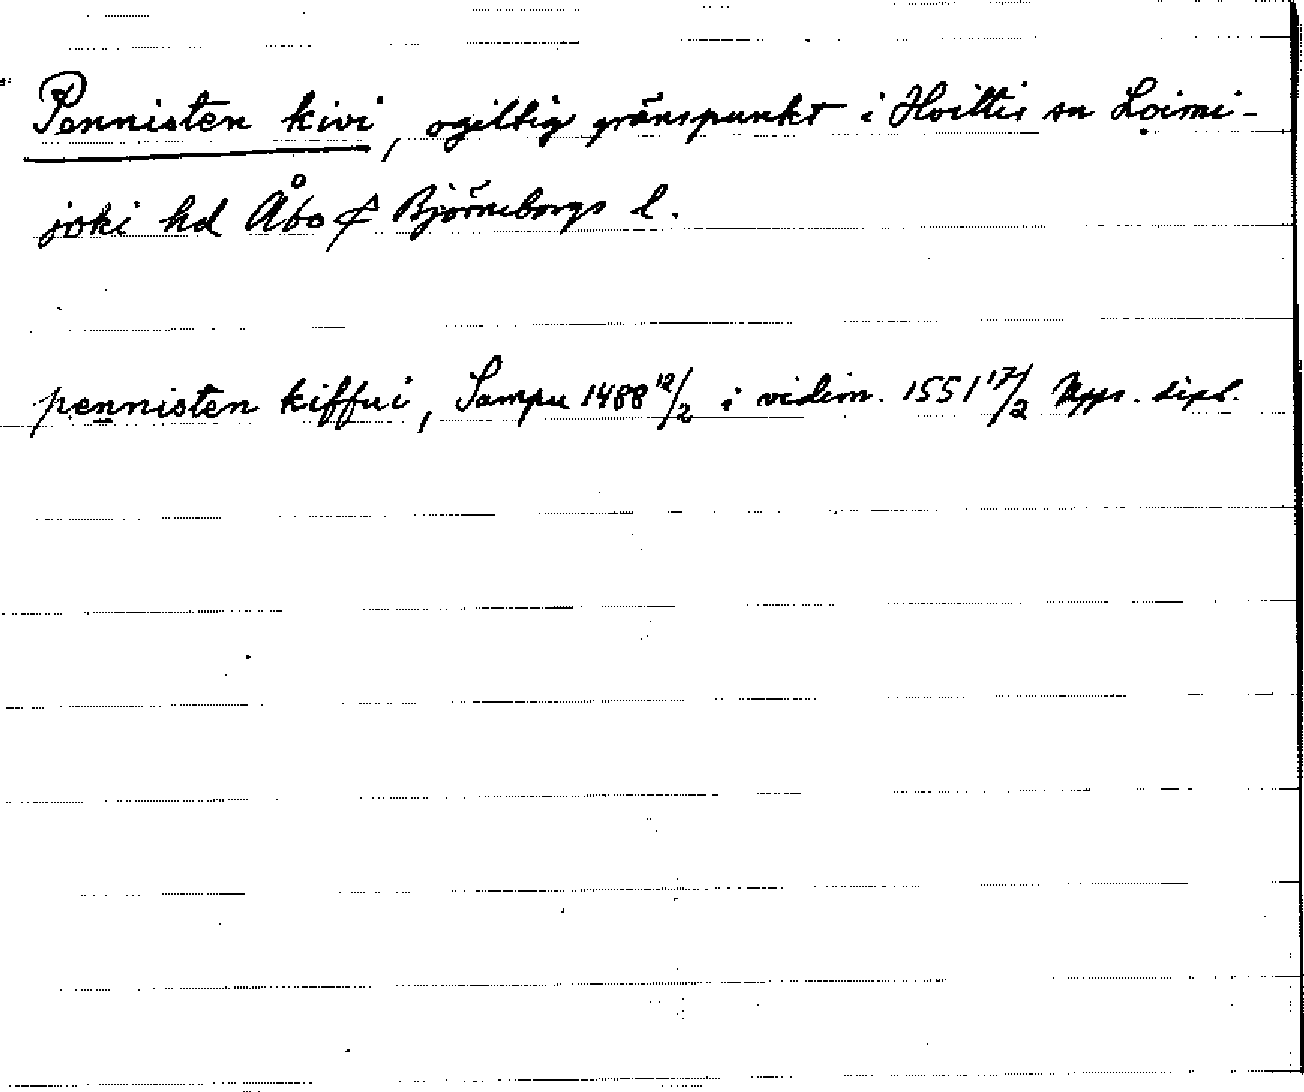 Pennisten kivi, ogiltig gränspunkt i Hvittis sn Loimi-
joki hd Åbo & Björneborgs l.
pennisten kiffui, Sampu 1488 12/2 i vidim. 1551 17/2 Upps. dipl.